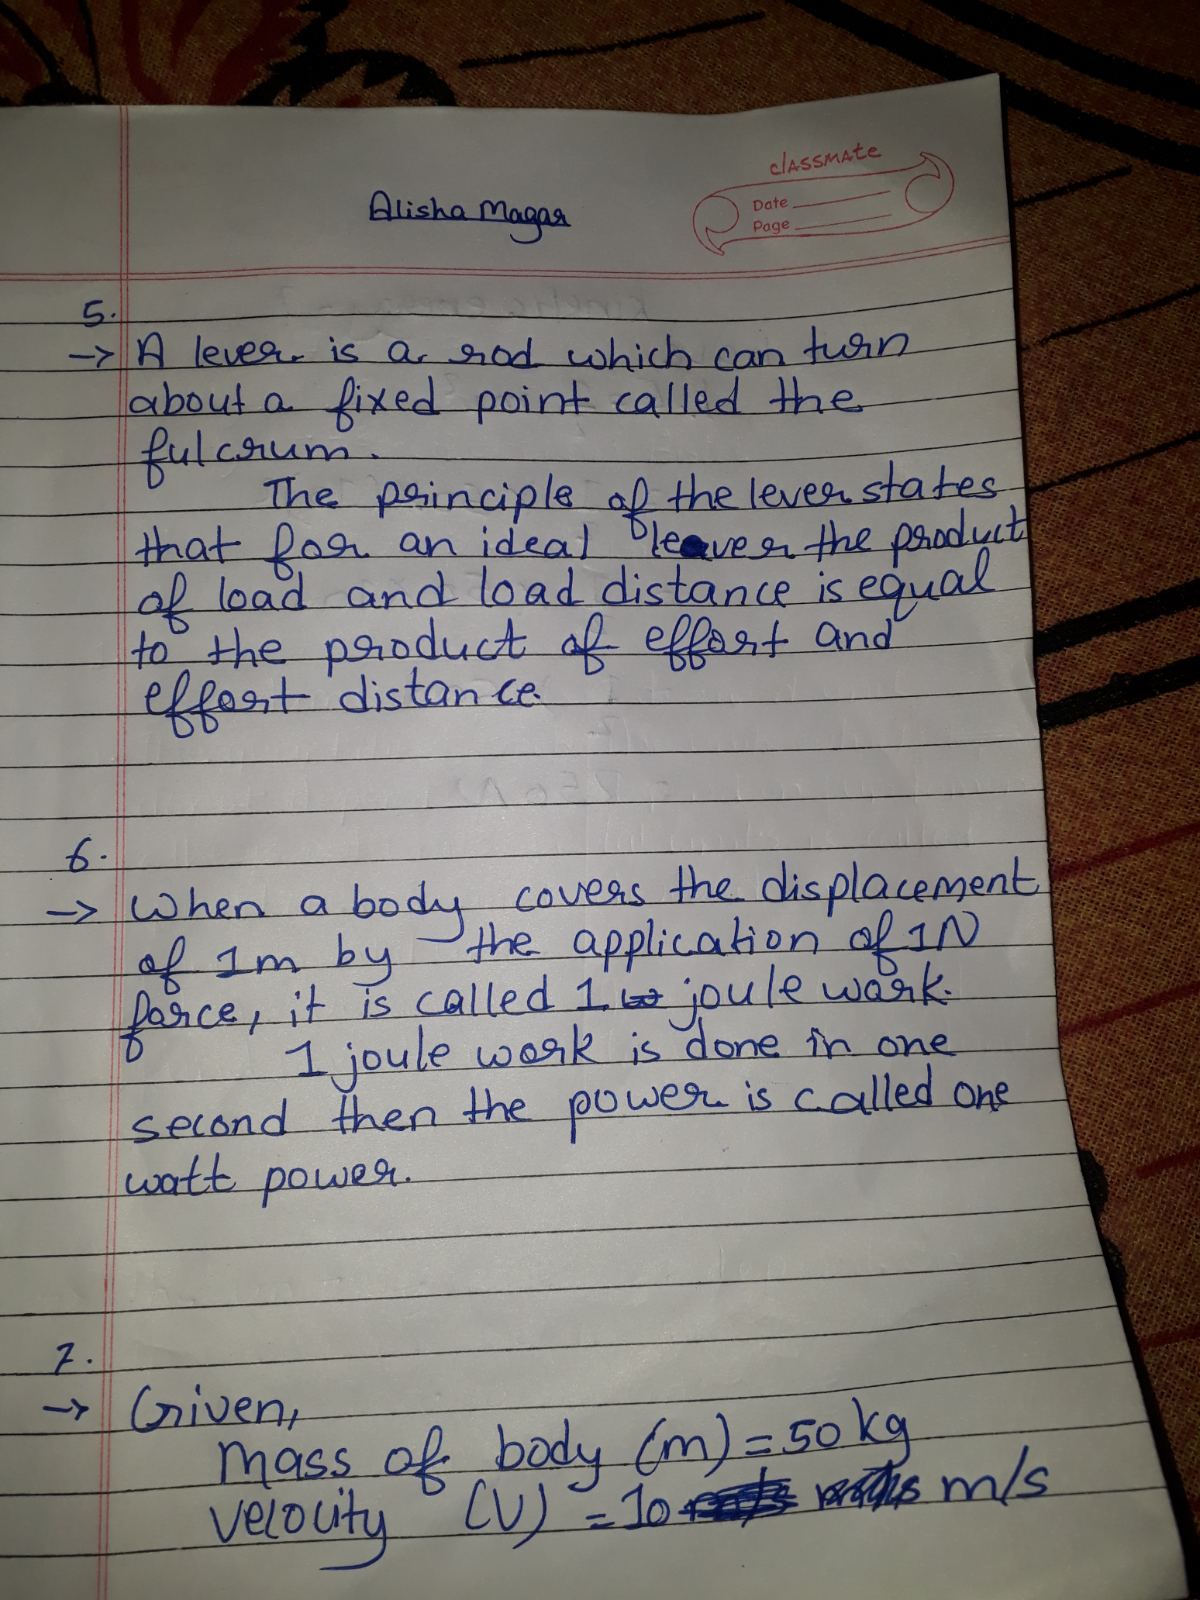 classmate
Date
Page
Alisha Magar
5.
→ A lever is a rod which can turn
about a fixed point called the
fulcrum.
The principle of the lever states
that for an ideal leaver the product
of load and load distance is equal
to the product of effort and
effort distance.
6.
→ When a body covers the displacement
of 1m by the application of 1N
force, it is called 1 joule work.
1 joule work is done in one
second then the power is called one
watt power.
7.
→ Given,
Mass of body (m) = 50 kg
velocity (v) = 10 m/s